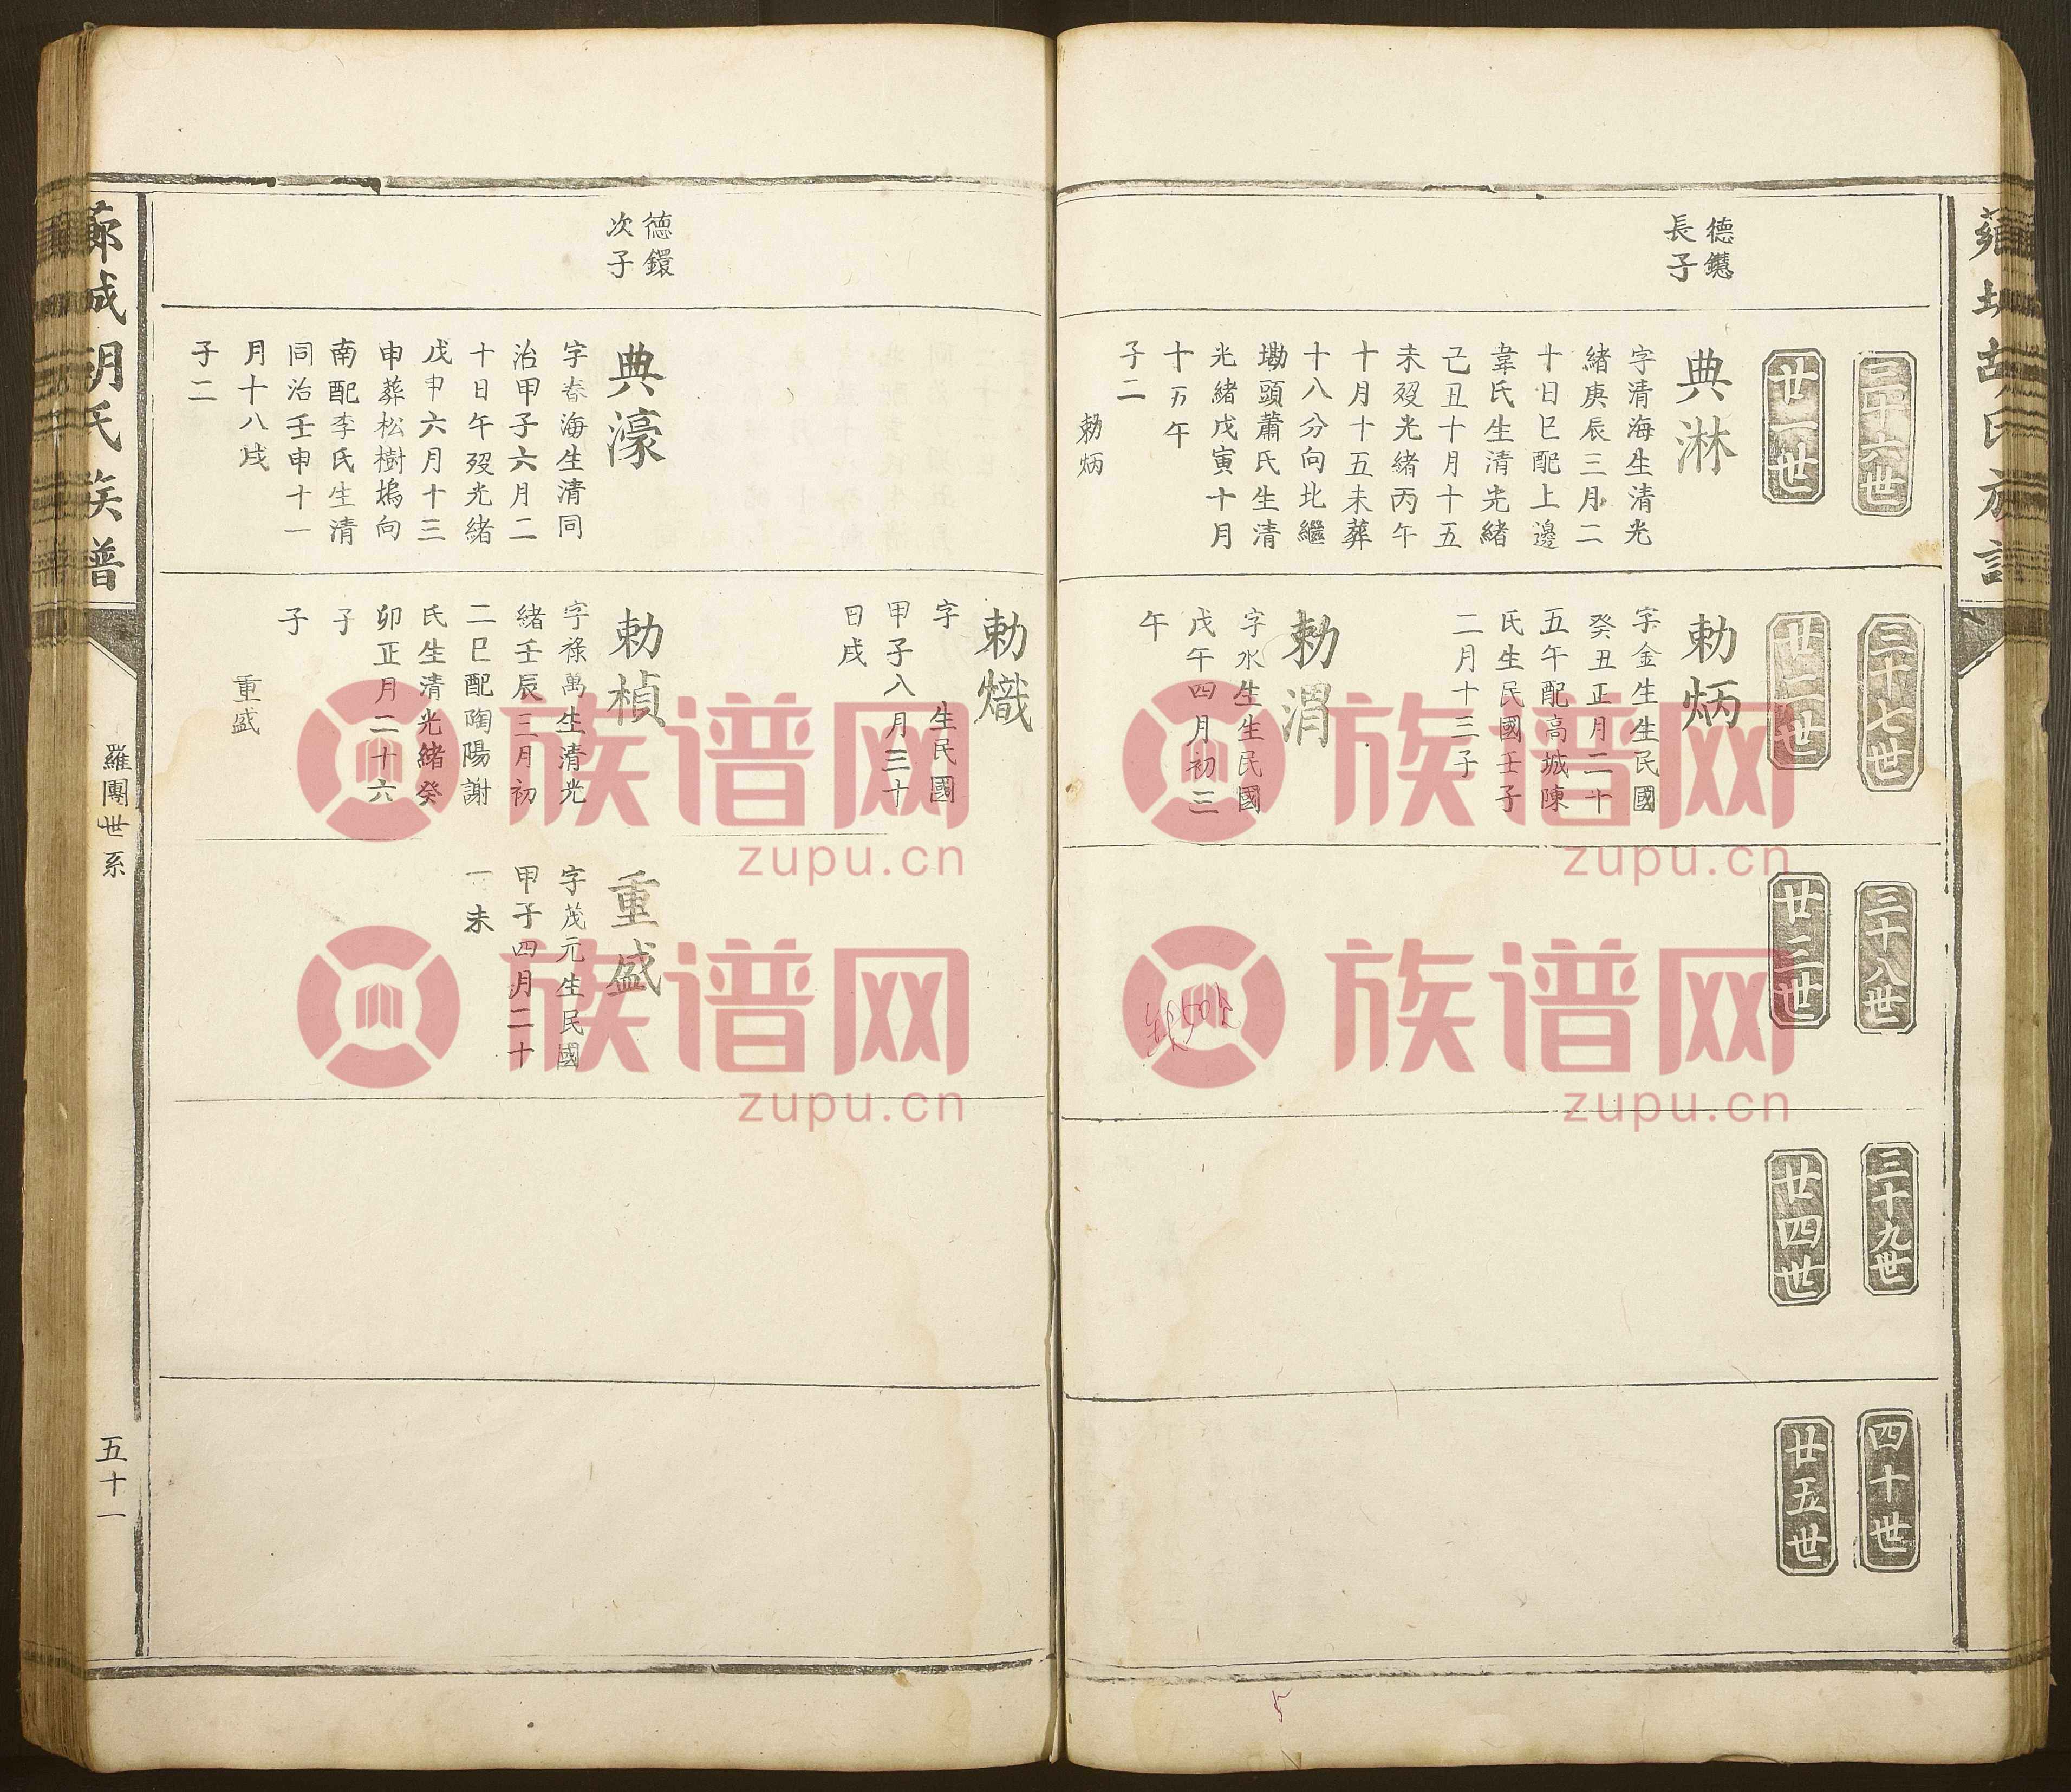 三十六世
廿一世
三十七世
廿二世
三十八世
廿三世
三十九世
廿四世
四十世
廿五世
長子
典淋
字清海生清光
緒庚辰三月二
十日巳配上邊
韋氏生清光緒
己丑十月十五
未歿光緒丙午
十月十五未葬
十八分向北繼
坳頭蕭氏生清
光緒戊寅十月
十五午
子二
勅炳
勅炳
字金生生民國
癸丑正月二十
五午配高城陳
氏生民國壬子
二月十三子
勅渭
字水生生民國
戊午四月初三
午
德鐶
次子
典濠
字春海生清同
治甲子六月二
十日午歿光緒
戊申六月十三
申葬松樹塢向
南配李氏生清
同治壬申十一
月十八戌
子二
勅熾
字 生民國
甲子八月三十
日戌
勅楨
字祿萬生清光
緒壬辰三月初
二巳配陶陽謝
氏生清光緒癸
卯正月二十六
子
子
重盛
重盛
字茂元生民國
甲子四月二十
一未
城胡氏族譜
羅團世系
五十一
族谱网
zupu.cn
族谱网
zupu.cn
族谱网
zupu.cn
族谱网
zupu.cn